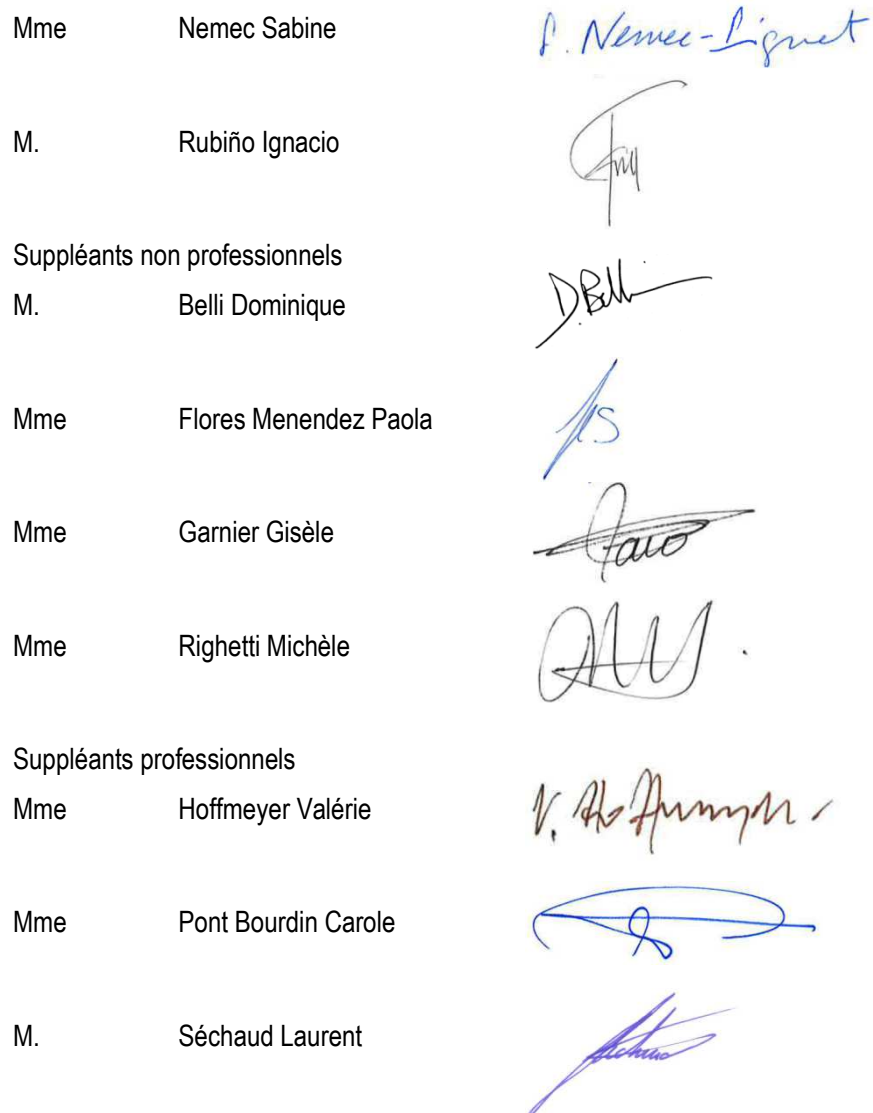 Mme Nemec Sabine S. Nemec-Pignet
M. Rubiño Ignacio
Suppléants non professionnels
M. Belli Dominique D. Belli
Mme Flores Menendez Paola
Mme Garnier Gisèle
Mme Righetti Michèle
Suppléants professionnels
Mme Hoffmeyer Valérie
Mme Pont Bourdin Carole
M. Séchaud Laurent